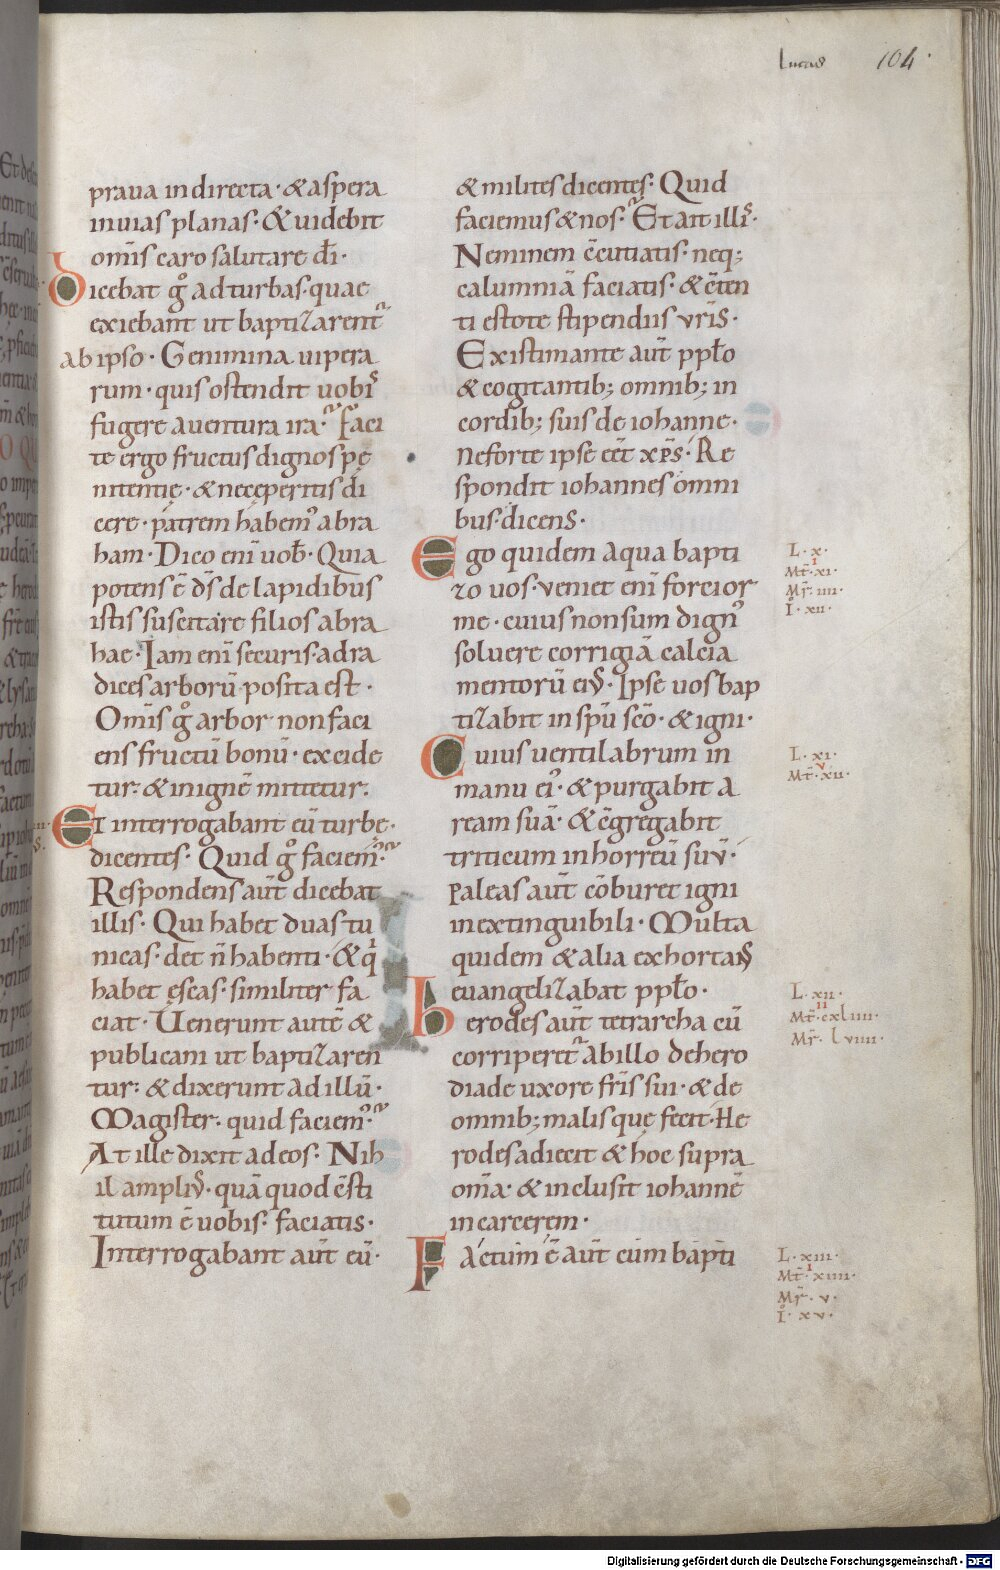 Lucas 104.
praua in directa· & aspera
in uias planas· & uidebit
om̅is caro salutare d̅i·
Dicebat g̊ ad turbas· quae
exiebant ut baptizarent᷑
ab ipso· Genimina uipera
rum· quis ostendit uobiˢ
fugere a uentura ira· Faci
te ergo fructus dignos pę
nitentię· & ne cęperitis di
cere· patrem habem᾽ abra
ham· Dico eni̅ uob̅· Quia
potens e̅ d̅s de lapidibus
istis suscitare filios abra
hae· Iam eni̅ securis ad ra
dices arboru̅ posita est·
Om̅is g̊ arbor non faci
ens fructu̅ bonu̅· excide
tur· & in igne̅ mittetur·
Et interrogabant eu̅ turbę·
dicentes· Quid g̊ faciem᾽·
Respondens aut̅ dicebat
illis· Qui habet duas tu
nicas· det n̅ habenti· & qⁱ
habet ęscas· similiter fa
ciat· Uenerunt aute̅ &
publicani ut baptizaren
tur· & dixerunt ad illu̅·
Magister· quid faciem᾽·
At ille dixit ad eos· Nih
il ampliuˢ· qua̅ quod c̅sti
tutum e̅ uobis· faciatis·
Interrogabant aut̅ eu̅·
& milites dicentes· Quid
faciemus & nos· Et ait illiˢ·
Neminem c̅cutiatis· neq;
calumnia̅ faciatis· & c̅ten
ti estote stipendiis vr̅is·
Existimante aut̅ pp̅lo
& cogitantib; omnib; in
cordib; suis de iohanne·
ne forte ipse e̅et xp̅s· Re
spondit iohannes omni
bus· dicens·
Ego quidem aqua bapti
zo uos· veniet eni̅ forcior
me· cuius non sum dign᾽
soluere corrigia̅ calcia
mentoru̅ eiuˢ· Ipse uos bap
tizabit in sp̅u sc̅o· & igni·
Cuius uentilabrum in
manu ei᾽· & purgabit a
ream sua̅· & c̅gregabit
triticum in horreu̅ suu̅·
Paleas aut̅ co̅buret igni
inextinguibili· Multa
quidem & alia exhortanˢ
euangelizabat pp̅lo·
herodes aut̅ tetrarcha cu̅
corriperet᷑ ab illo de hero
diade uxore fr̅is sui· & de
omnib; malis quę fecit· He
rodes adiecit & hoc supra
om̅a· & inclusit iohanne̅
in carcerem·
Factum e̅ aut̅ cum bapti
L· x·
I
Mt̅· xi·
Mr̅· iiii·
I̊· xii·
L· xi·
V
Mt̅· xii·
L· xii·
II
Mt̅· cxliiii·
Mr̅· lviiii·
L· xiii·
I
Mt̅· xiiii·
Mr̅· v·
I̊· xv·
Digitalisierung gefördert durch die Deutsche Forschungsgemeinschaft - DFG